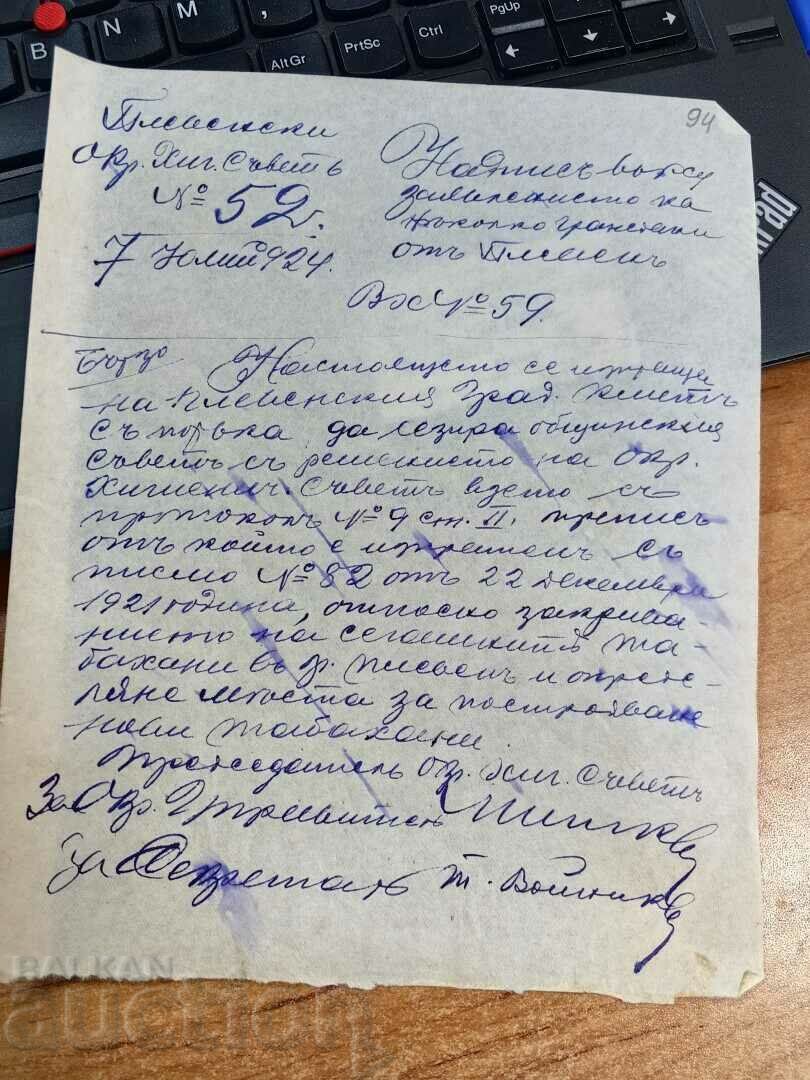 94
Плевенски
Окр. Хиг. Съветъ
№ 52.
7 Юлий 924.
Надписъ върху
заявлението на
няколко граждани
отъ Плевенъ
Вх № 59.
Бързо
Настоящето се изпраща
на Плевенския Град. Кметъ
съ молба да сезира общинския
съветъ съ решението на Окр.
Хигиенич. Съветъ взето съ
протоколъ № 9 ст. II. преписъ
отъ който е изпратенъ съ
писмо № 82 отъ 22 Декемврий
1921 година, относно закрива-
нието на сегашнитѣ та-
бахани въ гр. Плевенъ и опреде-
ляне мѣста за построяване
нови табахани.
Председатель Окр. Хиг. Съветъ
За Окр. Управитель
за Секретарь Т. Войников
PgUp
PrtSc
Ctrl
AltGr
B
N
M
BALKAN
auction